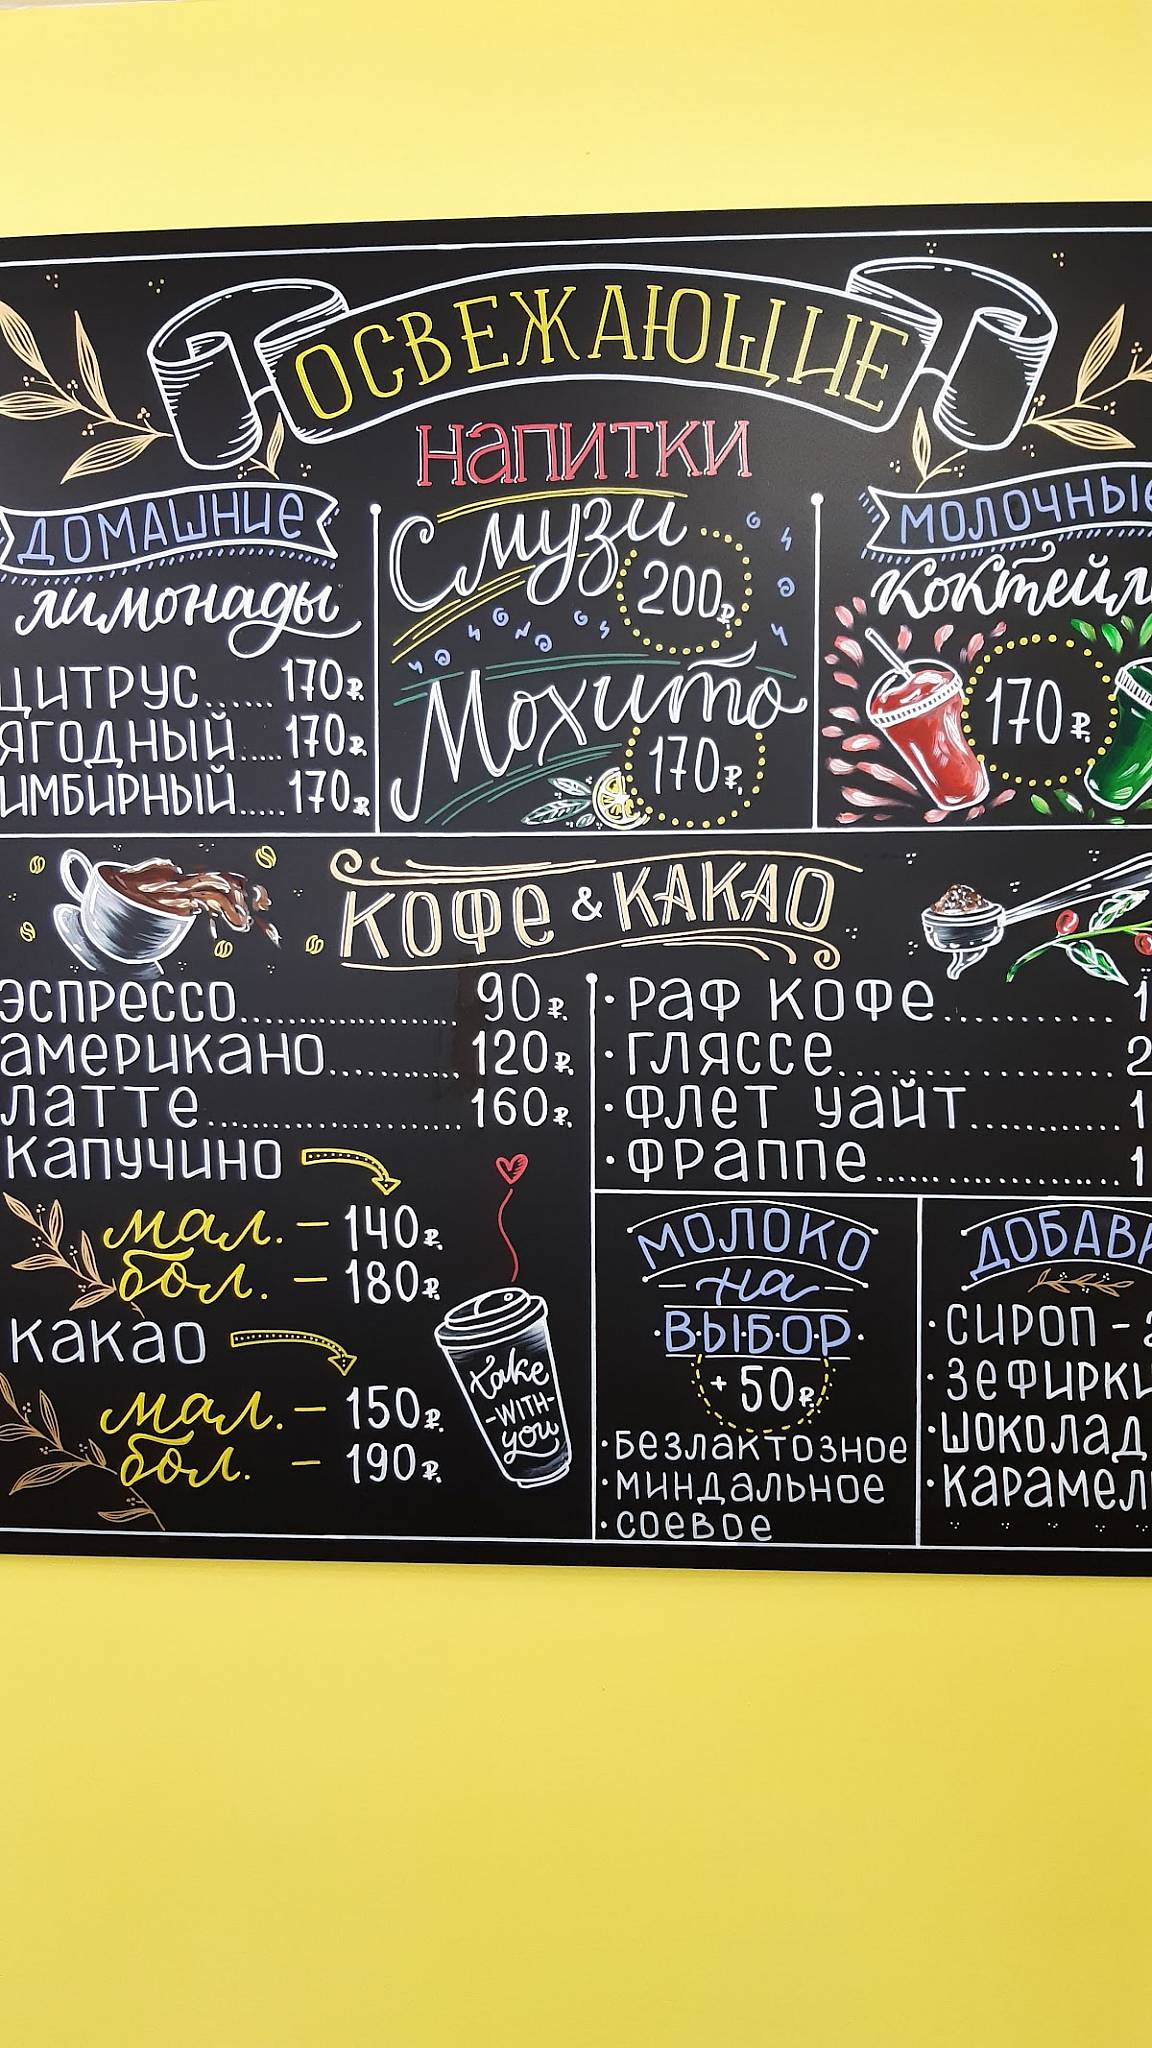 ОСВЕЖАЮЩИЕ
НАПИТКИ
ДОМАШНИЕ
лимонады
ЦИТРУС...... 170₽
ЯГОДНЫЙ.... 170₽
ИМБИРНЫЙ.... 170₽
Смузи
200₽
Мохито
170₽
МОЛОЧНЫЕ
коктейл
170₽
КОФЕ & КАКАО
ЭСПРЕССО.................... 90₽
АМЕРИКАНО............ 120₽
ЛАТТЕ....................... 160₽
КАПУЧИНО
мал. – 140₽
бол. – 180₽
КАКАО
мал. – 150₽
бол. – 190₽
Take
-WITH-
you
· РАФ КОФЕ........... 1
· ГЛЯССЕ.................. 2
· ФЛЕТ УАЙТ........... 1
· ФРАППЕ................. 1
МОЛОКО
– на –
·В·Ы·Б·О·Р·
+ 50₽
· БЕЗЛАКТОЗНОЕ
· МИНДАЛЬНОЕ
· СОЕВОЕ
ДОБАВ
· СИРОП – 2
· ЗЕФИРКИ
· ШОКОЛАД
· КАРАМЕЛ